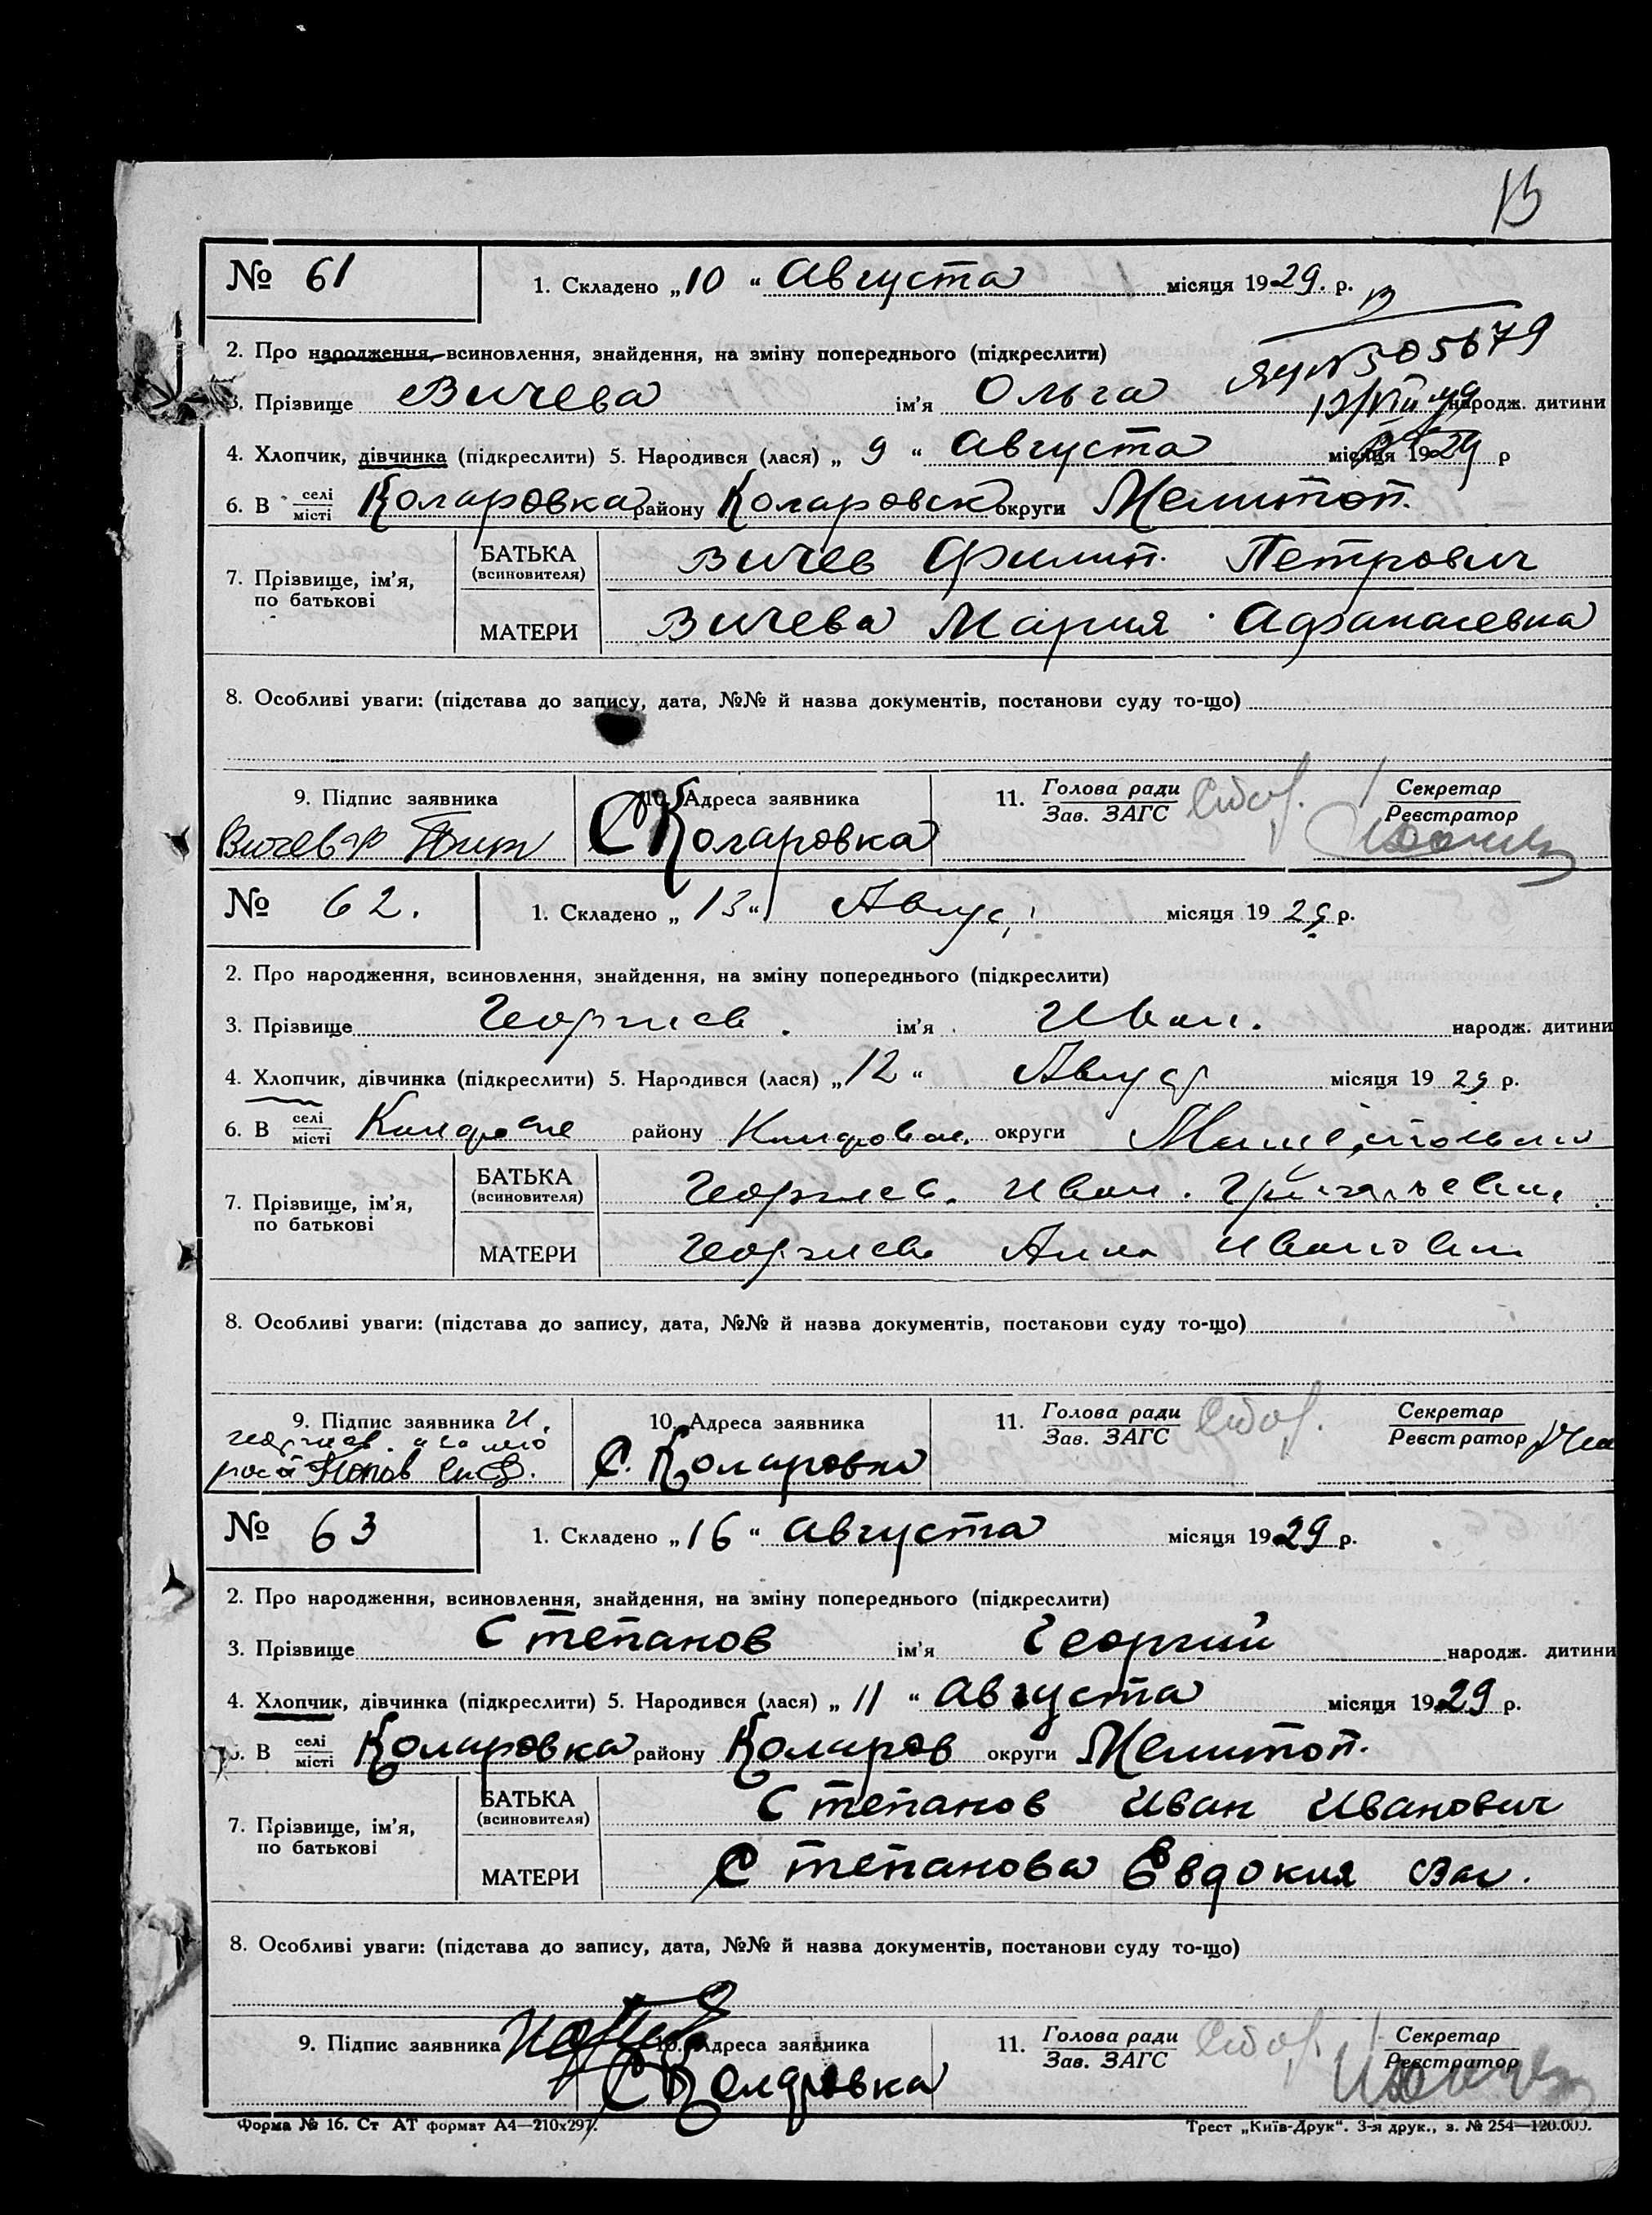 № 61 1. Складено „10“ Августа місяця 1929. р.
2. Про народження, всиновлення, знайдення, на зміну попереднього (підкреслити)
505679
3. Прізвище Вичева ім'я Ольга народж. дитини
4. Хлопчик, дівчинка (підкреслити) 5. Народився (лася) „ 9 “ Августа місяця 1929 р
6. В селі/місті Коларовка району Коларовск округи Мелитоп.
7. Прізвище, ім'я, по батькові
БАТЬКА (всиновителя) Вичев Филип. Петрович
МАТЕРИ Вичева Мария Афанасевна
8. Особливі уваги: (підстава до запису, дата, №№ й назва документів, постанови суду то-що)
9. Підпис заявника 10. Адреса заявника 11. Голова ради/Зав. ЗАГС Секретар/Реєстратор
С Коларовка
№ 62. 1. Складено „13“ Авгус місяця 1929 р.
2. Про народження, всиновлення, знайдення, на зміну попереднього (підкреслити)
3. Прізвище Георгиев. ім'я Иван. народж. дитини
4. Хлопчик, дівчинка (підкреслити) 5. Народився (лася) „12“ Август місяця 1929 р.
6. В селі/місті району округи
7. Прізвище, ім'я, по батькові
БАТЬКА (всиновителя) Георгиев. Иван.
МАТЕРИ Георгиева Анна
8. Особливі уваги: (підстава до запису, дата, №№ й назва документів, постанови суду то-що)
9. Підпис заявника И. 10. Адреса заявника 11. Голова ради/Зав. ЗАГС Секретар/Реєстратор
Георгиев.
С. Коларовка
№ 63 1. Складено „16“ Августа місяця 1929 р.
2. Про народження, всиновлення, знайдення, на зміну попереднього (підкреслити)
3. Прізвище Степанов ім'я Георгий народж. дитини
4. Хлопчик, дівчинка (підкреслити) 5. Народився (лася) „ 11 “ Августа місяця 1929 р.
6. В селі/місті Коларовка району Коларов округи Мелитоп.
7. Прізвище, ім'я, по батькові
БАТЬКА (всиновителя) Степанов Иван Иванович
МАТЕРИ Степанова Евдокия
8. Особливі уваги: (підстава до запису, дата, №№ й назва документів, постанови суду то-що)
9. Підпис заявника 10. Адреса заявника 11. Голова ради/Зав. ЗАГС Секретар/Реєстратор
С Коларовка
Форма № 16. Ст АТ формат А4—210х297. Трест „Київ-Друк“. 3-я друк., з. № 254—120.000.